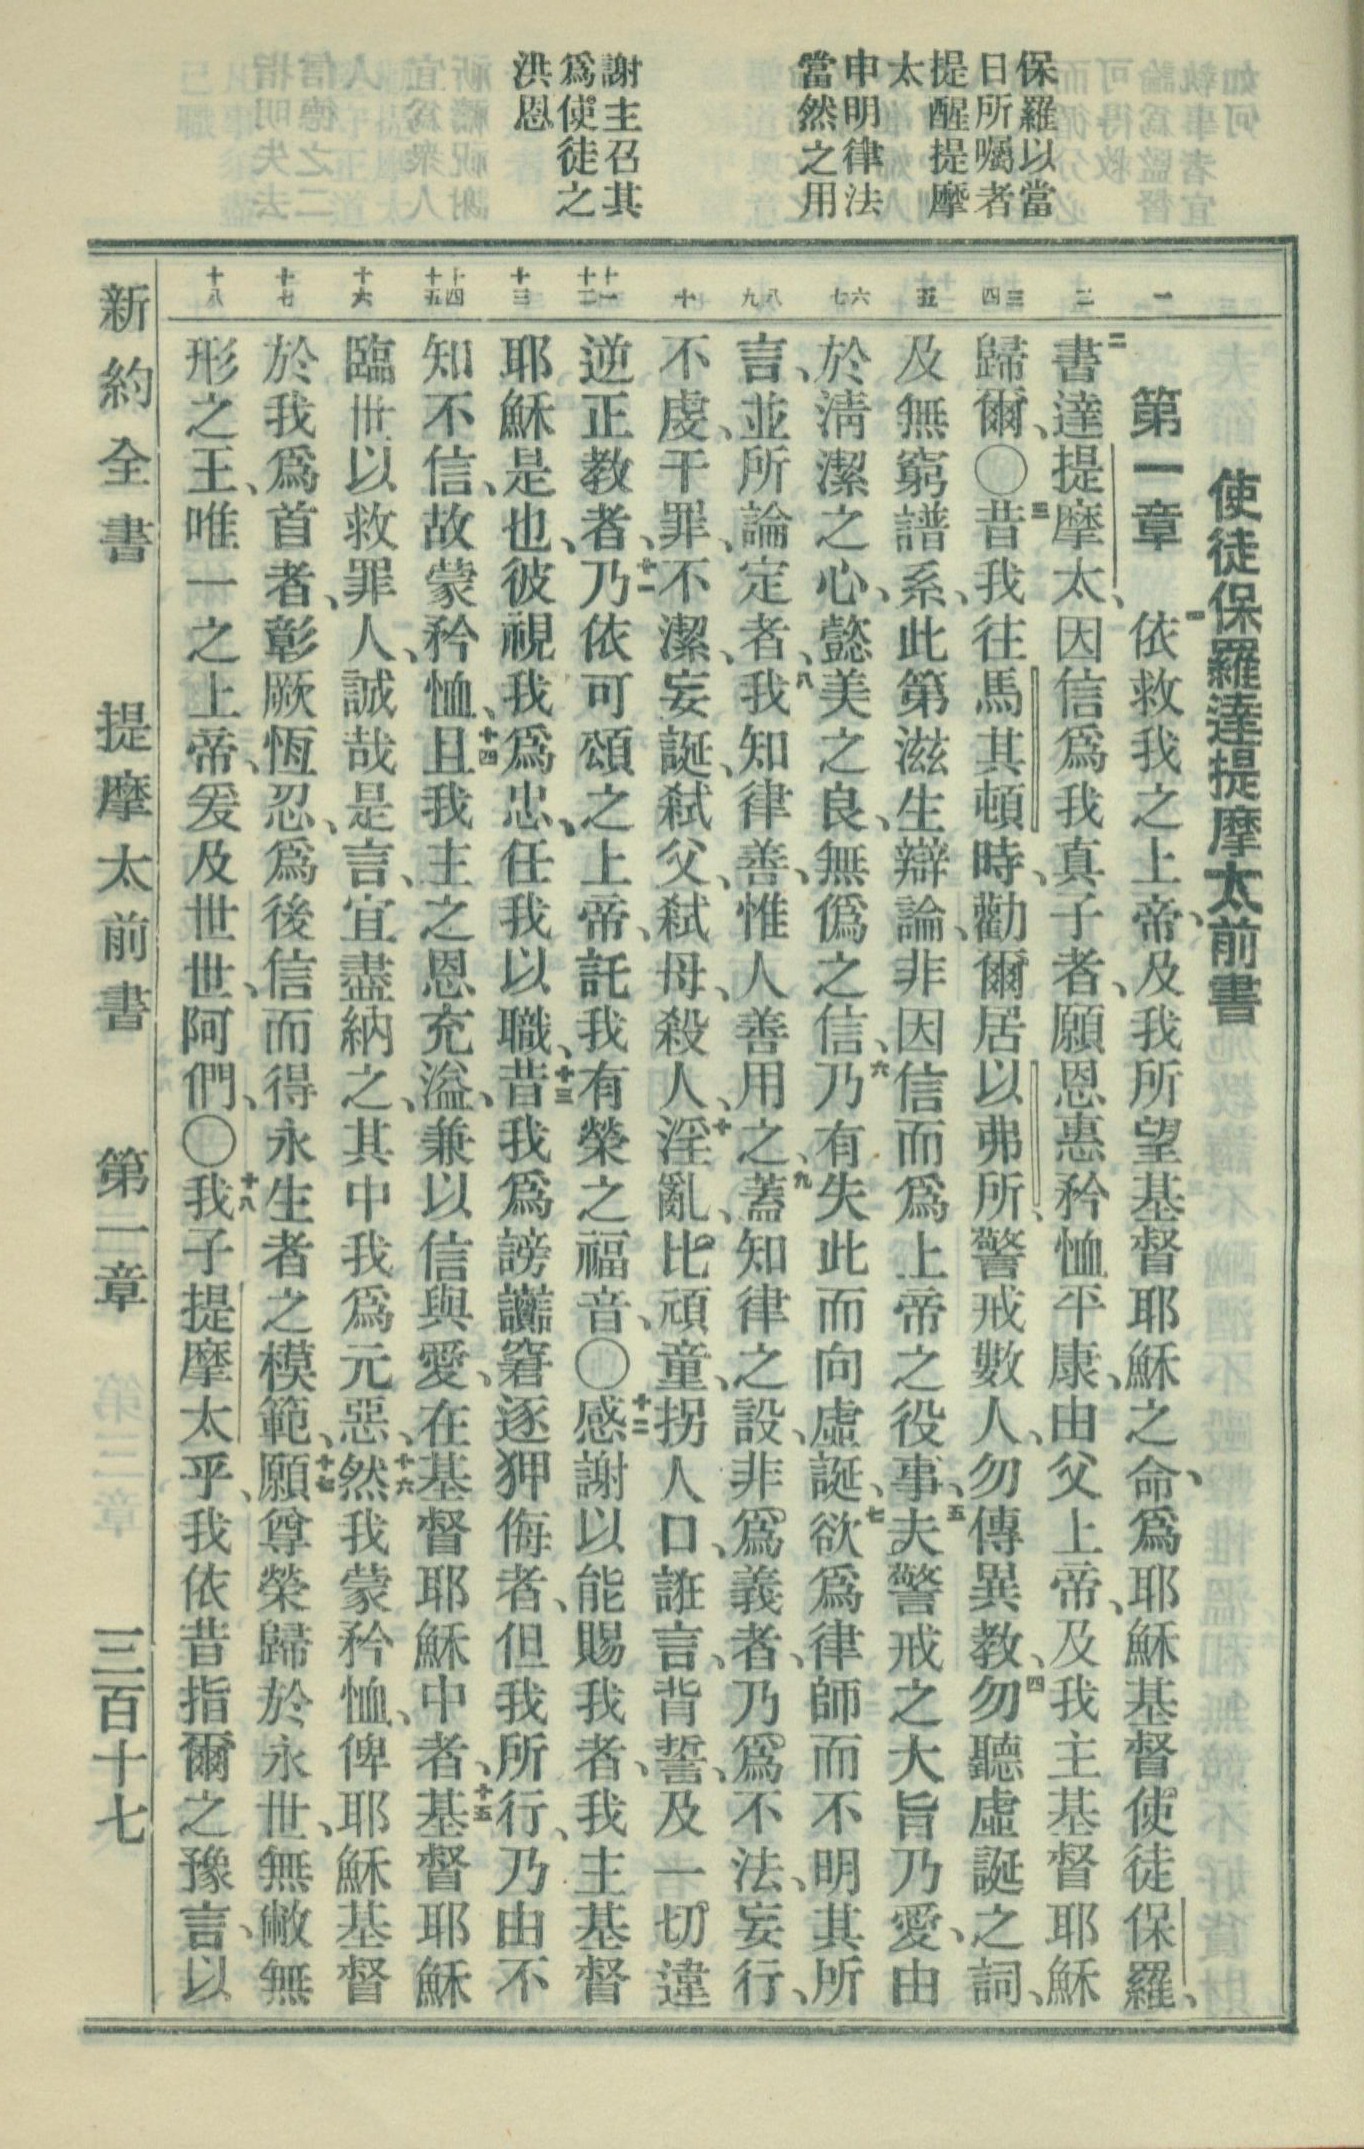 保羅以當
日所囑者
提醒提摩
太
申明律法
當然之用
謝主召其
爲使徒之
洪恩
使徒保羅達提摩太前書
一
第一章　依救我之上帝、及我所望基督耶穌之命、爲耶穌基督使徒保羅、
二
二書達提摩太、因信爲我真子者、願恩惠矜恤平康、由父上帝、及我主基督耶穌
三
四
歸爾、〇三昔我往馬其頓時、勸爾居以弗所、警戒數人、勿傳異教、四勿聽虛誕之詞、
五
及無窮譜系、此第滋生辯論、非因信而爲上帝之役事、五夫警戒之大旨乃愛、由
六
七
於淸潔之心、懿美之良、無僞之信、六乃有失此而向虛誕、七欲爲律師而不明其所
八
九
言、並所論定者、八我知律善、惟人善用之、九蓋知律之設、非爲義者、乃爲不法、妄行、
十
不虔、干罪、不潔、妄誕、弒父、弒母、殺人、十淫亂、比頑童、拐人口、誑言、背誓、及一切違
十一
十二
逆正教者、十一乃依可頌之上帝、託我有榮之福音、〇十二感謝以能賜我者、我主基督
十三
耶穌是也、彼視我爲忠、任我以職、十三昔我爲謗讟窘逐狎侮者、但我所行、乃由不
十四
十五
知不信、故蒙矜恤、十四且我主之恩充溢、兼以信與愛、在基督耶穌中者、十五基督耶穌
十六
臨世以救罪人、誠哉是言、宜盡納之、其中我爲元惡、十六然我蒙矜恤、俾耶穌基督
十七
於我爲首者、彰厥恆忍、爲後信而得永生者之模範、十七願尊榮歸於永世、無敝無
十八
形之王、唯一之上帝、爰及世世、阿們、〇十八我子提摩太乎、我依昔指爾之豫言、以
新約全書　提摩太前書　第一章　三百十七